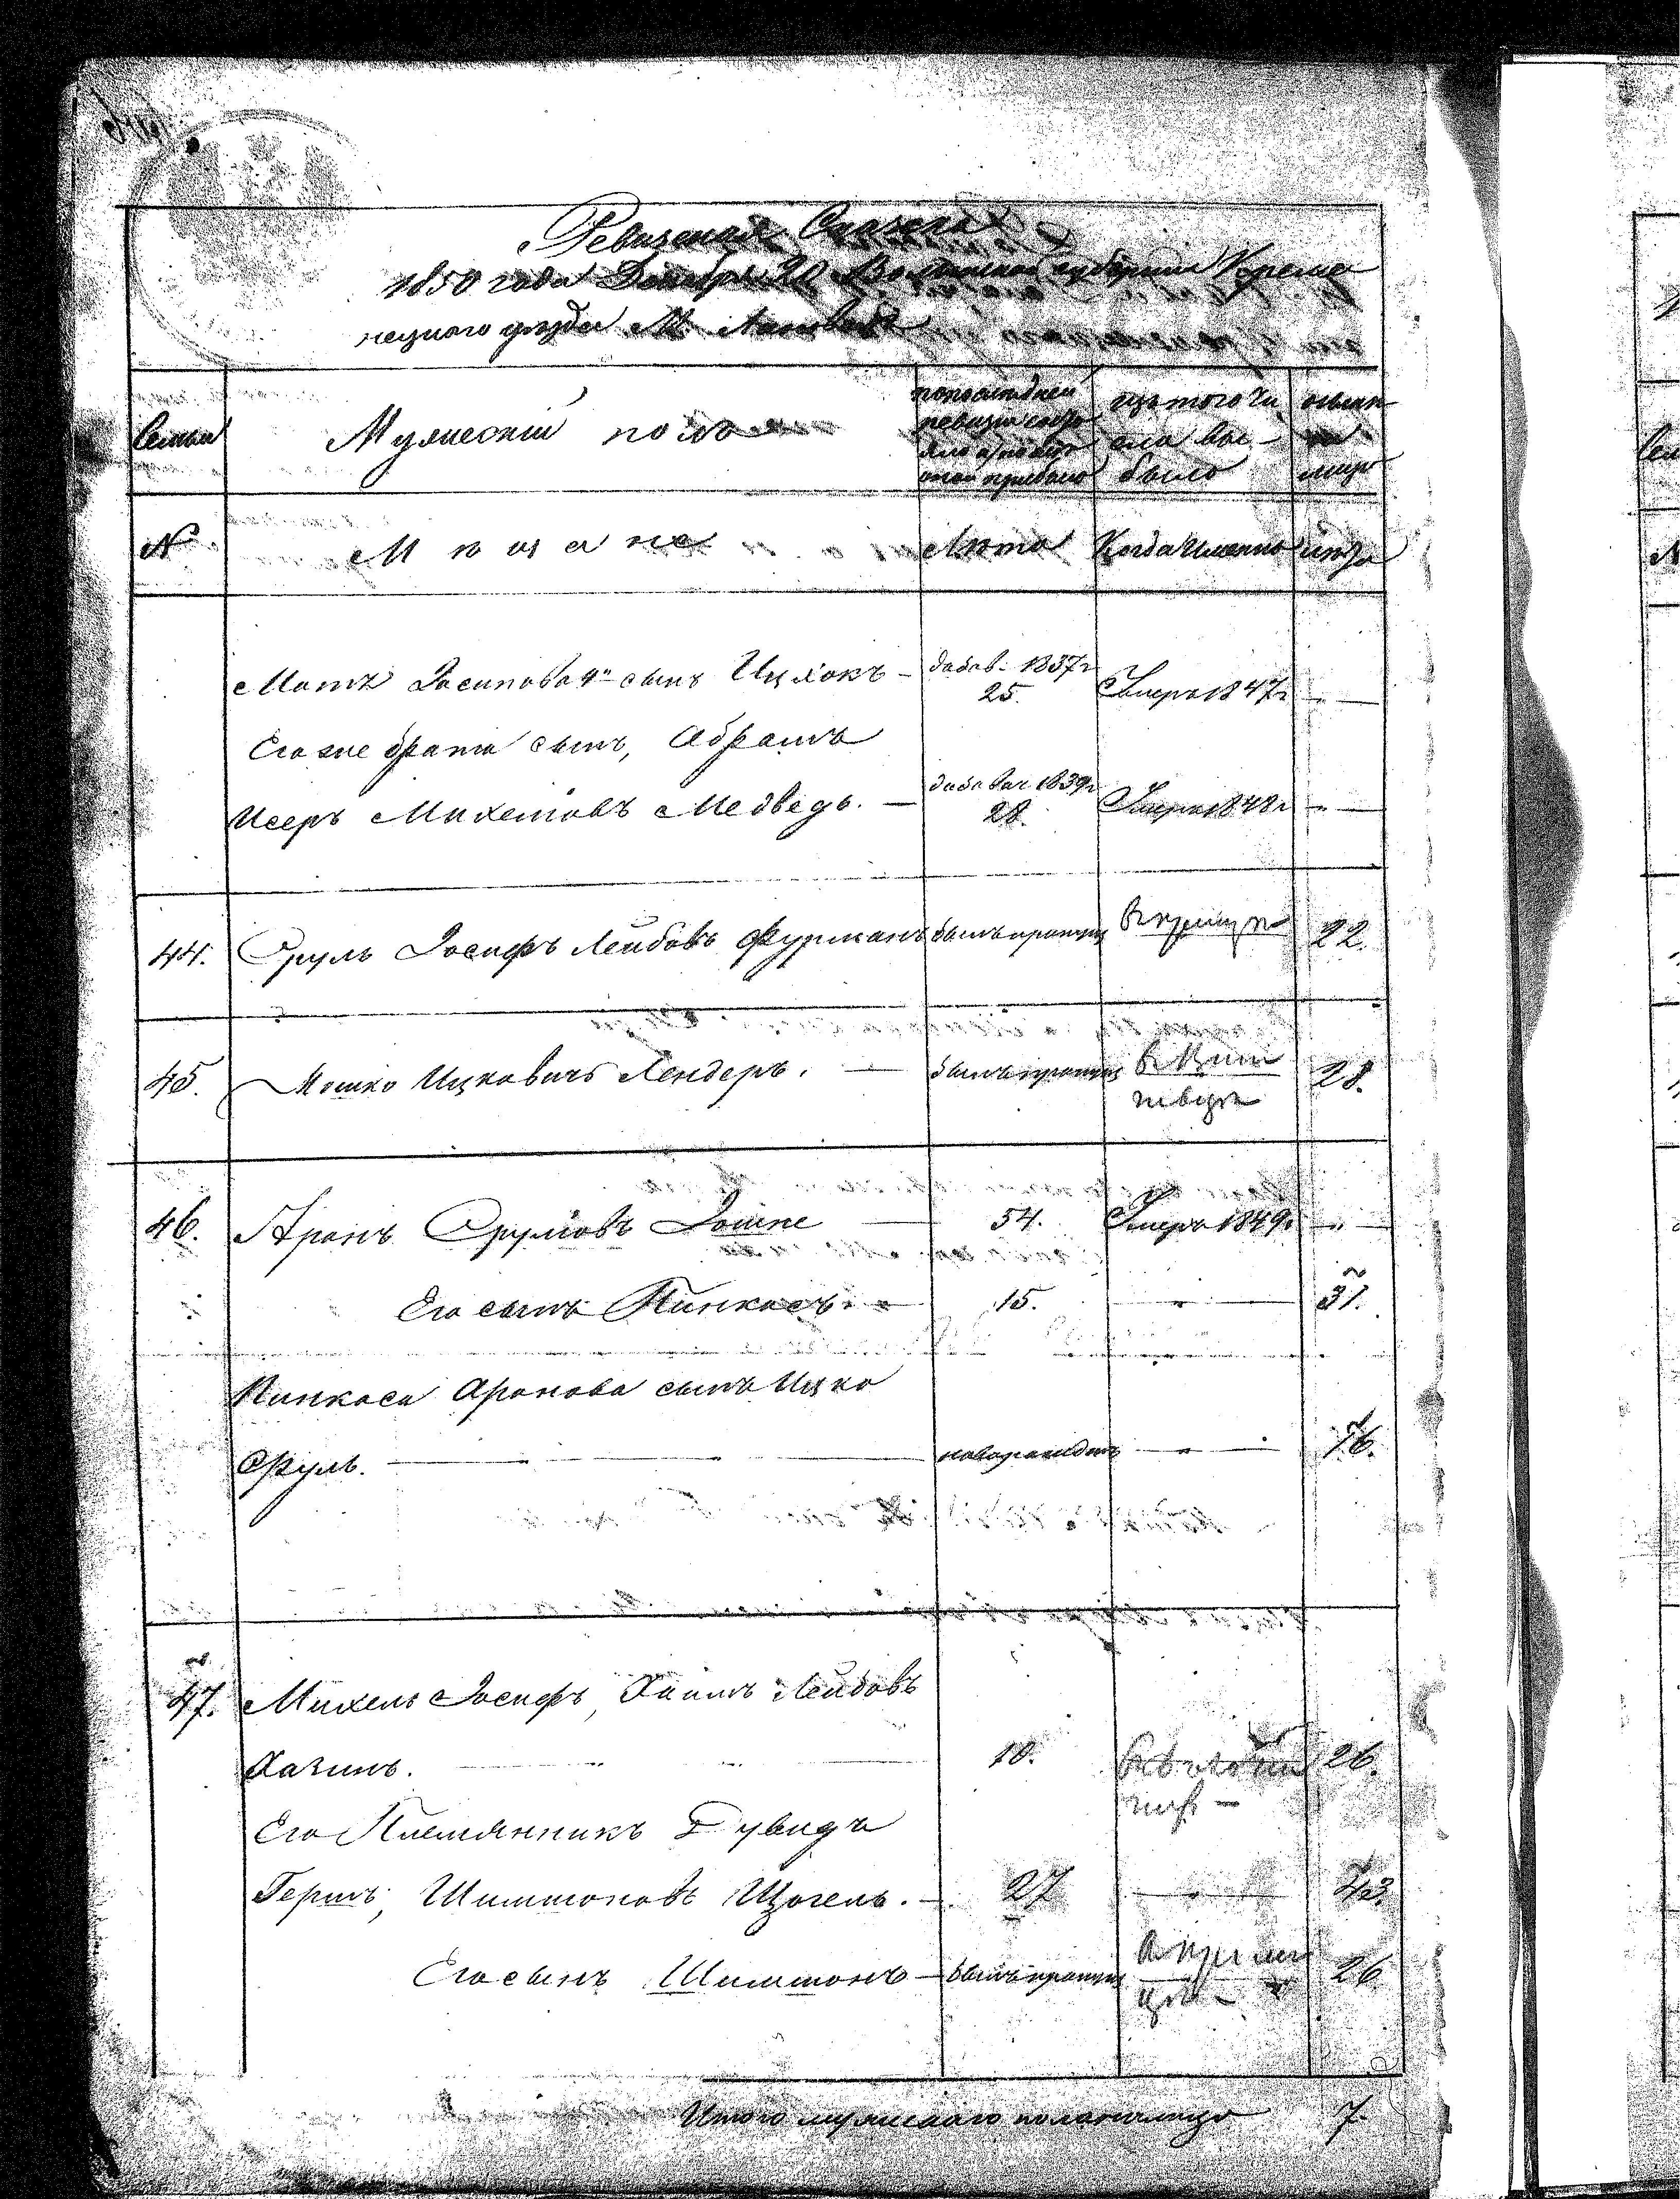 Ревизская Сказка
1850 года Декабря 20 Волынской губернии Креме
нецкого уезда М.
Семьи
Мужескій полъ
по последней
ревизіи состо
яло и после
оной прибыло
изъ того чи
сла вы-
было
нынѣ
на
лицо
№
Мѣщане
Лѣта
Когда именно
лѣта
Мотя Іосипова 4й сынъ Ицхокъ -
добав. 1837г
25.
Умеръ 1847г
Его же брата сынъ, Абрамъ
Исеръ Михелювъ Медведь. -
добавач. 1839г
28.
Умеръ 1848г
44. Сруль Іосифъ Лейбовъ Фурманъ былъ пропущ 22.
45. Мошко Ицковичъ Лендеръ. - былъ пропущ 28.
46. Аронъ Срулювъ 54. Умеръ 1849г
Его сынъ Пинкасъ 15. " 31.
Пинкаса Аронова сынъ Ицко
Сруль. новорожден " 16.
47. Михель Іосифъ, Хаимъ Лейбовъ
Хазинъ. 10. 26.
Его Племянникъ Дувидъ
Гершъ, Шиммоновъ - 27 " 43
Его сынъ Шиммонъ - былъ пропущ 26
Итого мужескаго пола налицо 7.